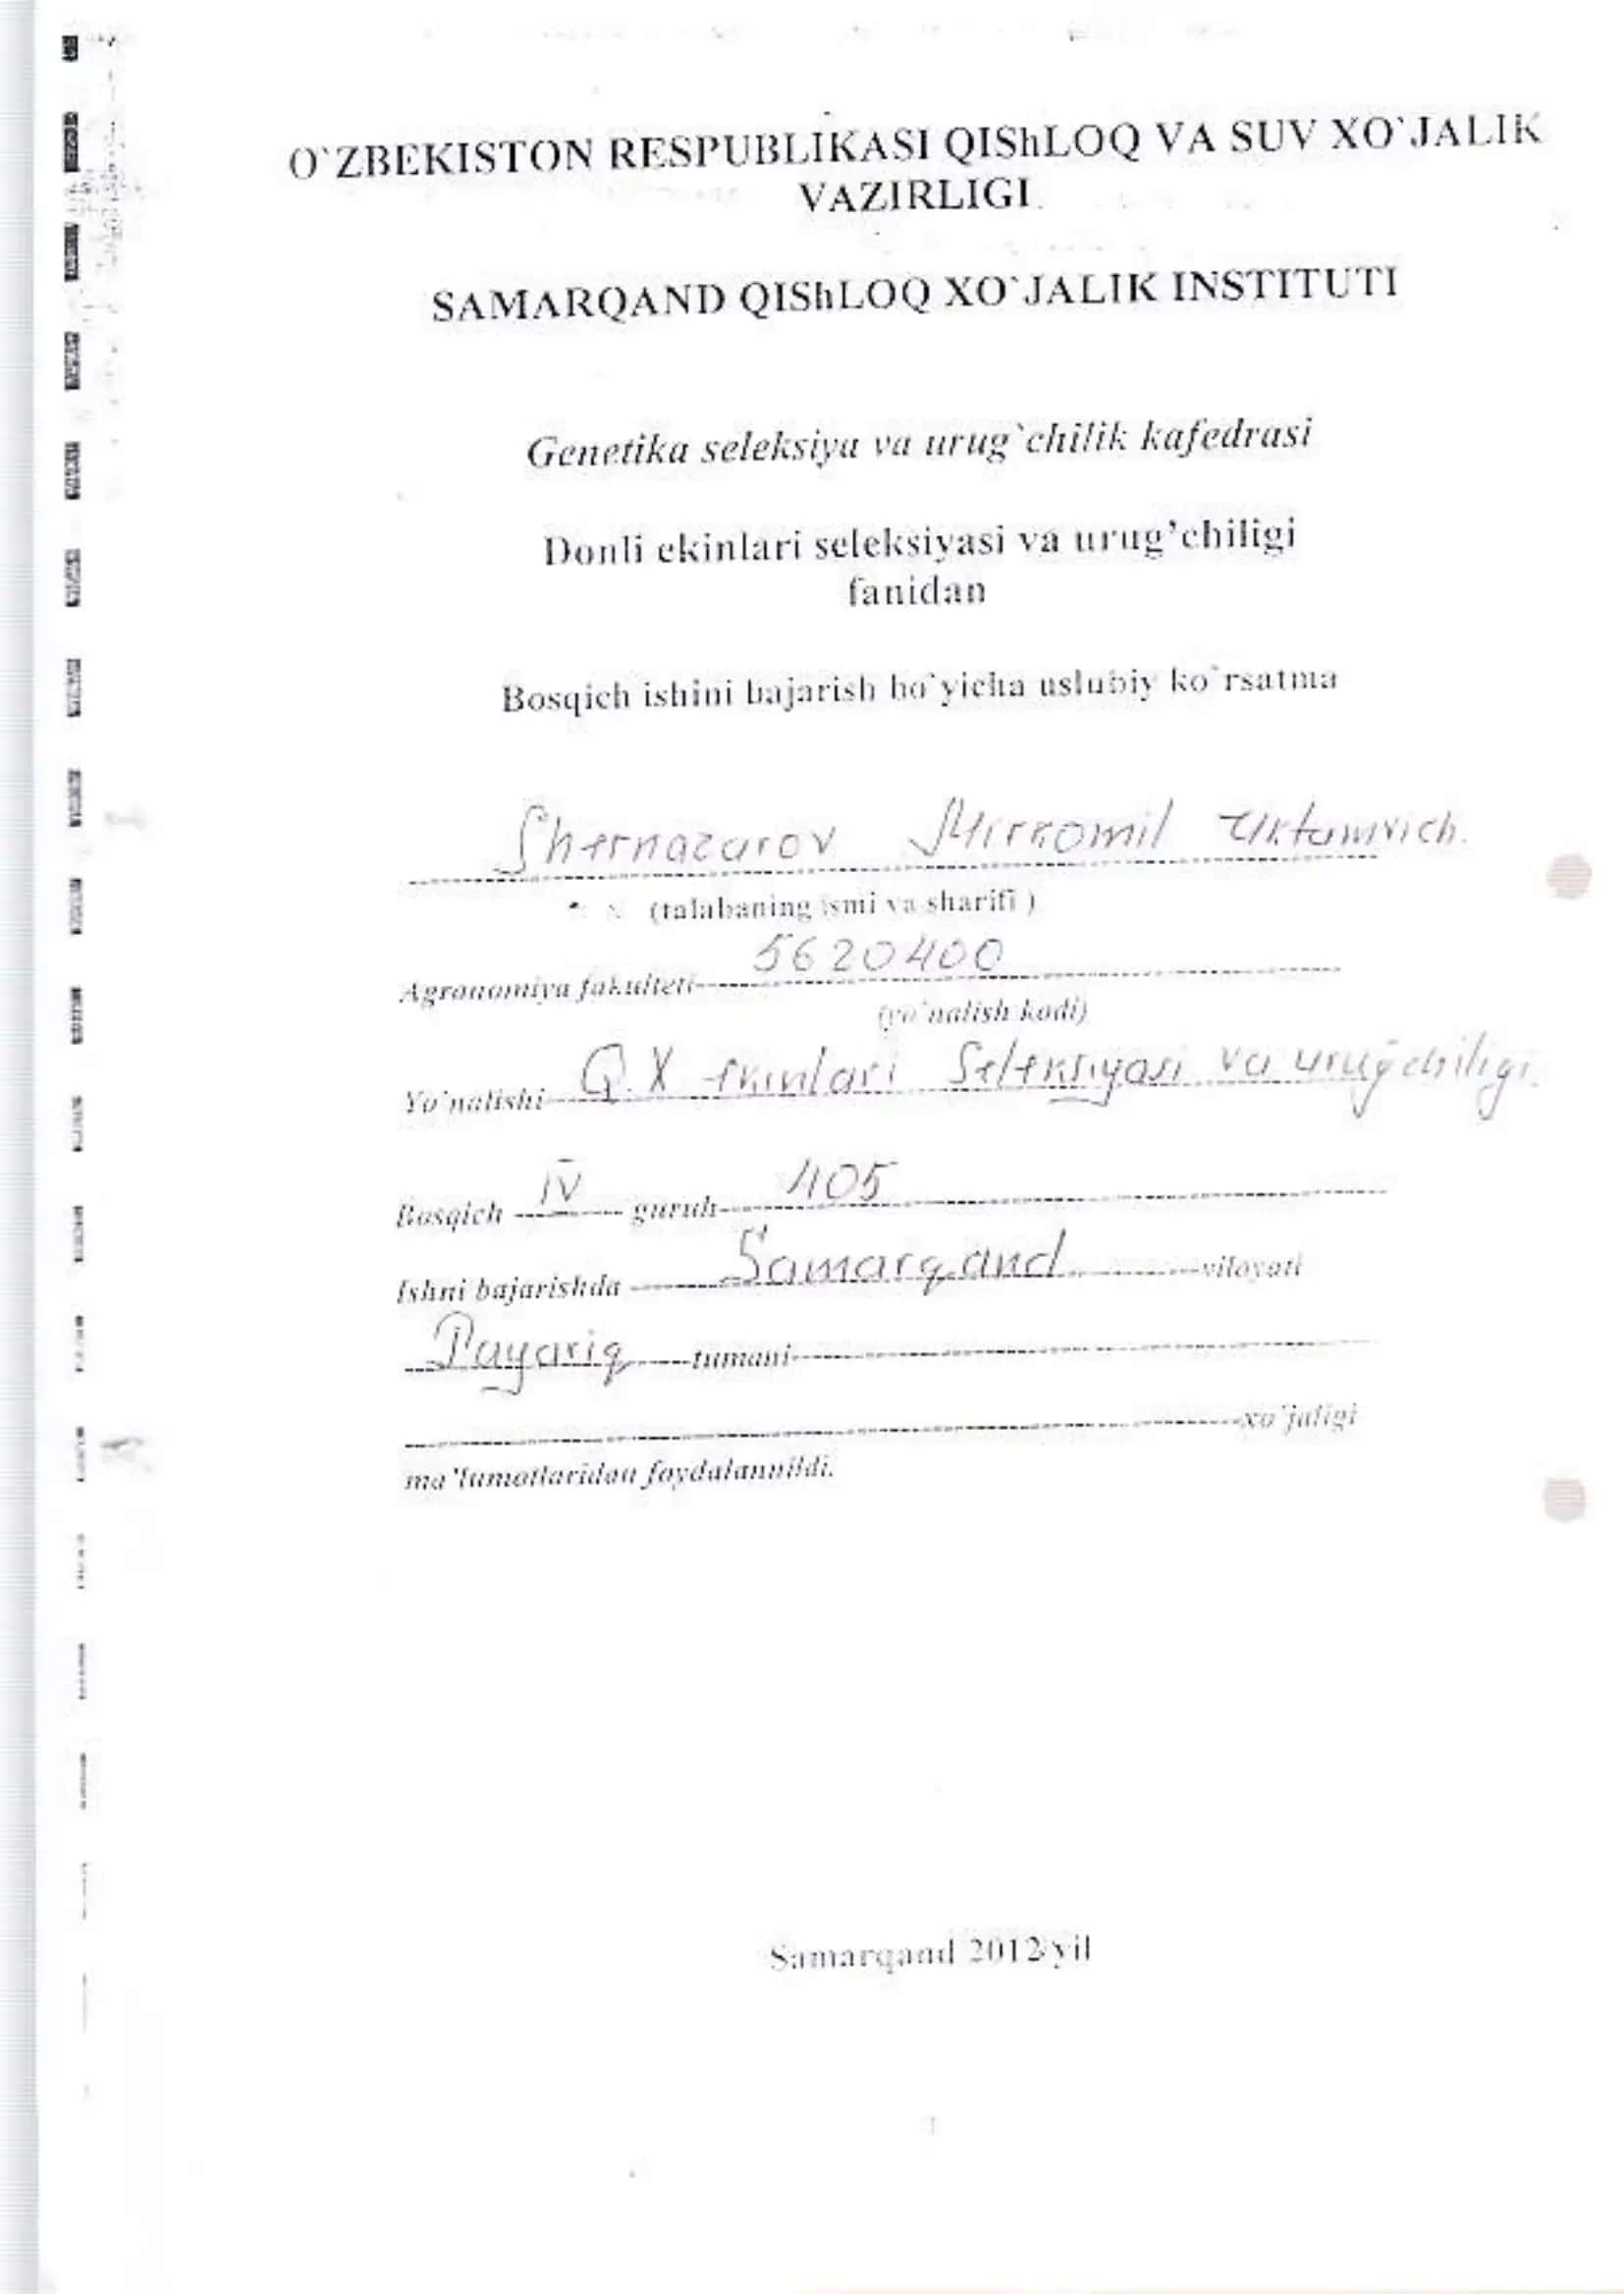 O`ZBEKISTON RESPUBLIKASI QIShLOQ VA SUV XO`JALIK
VAZIRLIGI
SAMARQAND QIShLOQ XO`JALIK INSTITUTI
Genetika seleksiya va urug`chilik kafedrasi
Donli ekinlari seleksiyasi va urug’chiligi
fanidan
Bosqich ishini bajarish bo`yicha uslubiy ko`rsatma
Shernazarov Mirkomil Uktamvich.
(talabaning ismi va sharifi )
5620400
Agranomiya fakulteti
(yo`nalish kodi)
Yo`nalishi Q.X ekinlari Seleksiyasi va urug'chiligi.
Bosqich IV guruh 405
Ishni bajarishda Samarqand viloyati
Payariq tumani
xo`jaligi
ma’lumotlaridan foydalannildi.
Samarqand 2012 yil
1